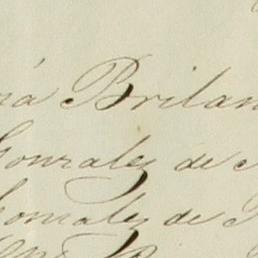 ná Brilan
Gonzales de
Gonzales de